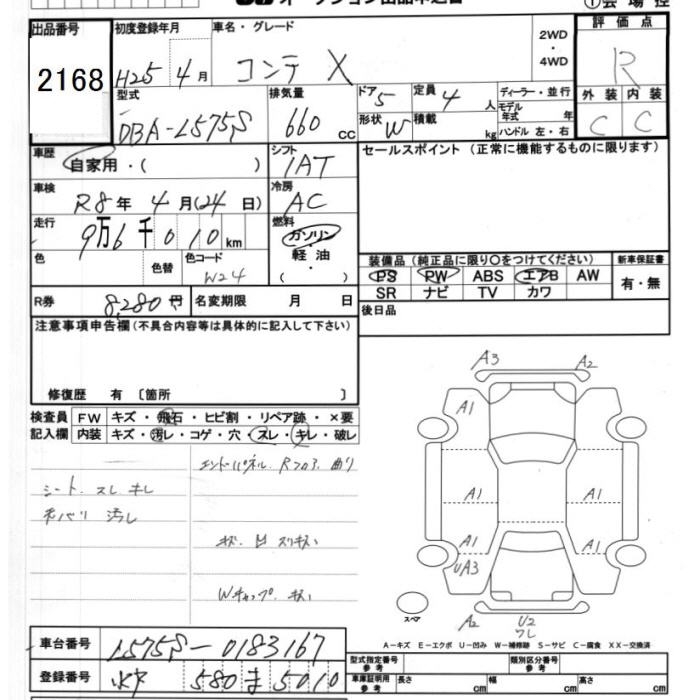 オークション出品申込書
①会場控
出品番号 2168
初度登録年月 H25年 4月
車名・グレード コンテ X
2WD・4WD
評価点 R
外装 C 内装 C
型式 DBA-L575S
排気量 660 cc
ドア 5 形状 W
定員 4 人 積載 kg
ディーラー・並行
モデル年式 年
ハンドル 左・右
車歴 自家用・( )
シフト IAT
セールスポイント（正常に機能するものに限ります）
車検 R8年 4月(24日)
冷房 AC
走行 9万6千010 km
燃料 ガソリン・軽油・( )
色 色替 色コード W24
装備品（純正品に限り○をつけてください）
PS PW ABS エアB AW
SR ナビ TV カワ
新車保証書 有・無
R券 8,280円 名変期限 月 日
後日品
注意事項申告欄(不具合内容等は具体的に記入して下さい)
修復歴 有〔箇所 〕
検査員記入欄
FW キズ・飛石・ヒビ割・リペア跡・×要
内装 キズ・汚レ・コゲ・穴・スレ・キレ・破レ
エンドパネル Rフロア 曲り
シート スレ キレ
天バリ 汚レ
Wキャップ キズ
A3 A2
A1
A1 A1
A1 A1
UA3
スペア
A2 U2 ワレ
A－キズ E－エクボ U－凹み W－補修跡 S－サビ C－腐食 XX－交換済
車台番号 L575S-0183167
登録番号 水戸 580 ま 5010
型式指定番号 参考
類別区分番号 参考
車庫証明用 参考 長さ cm 幅 cm 高さ cm